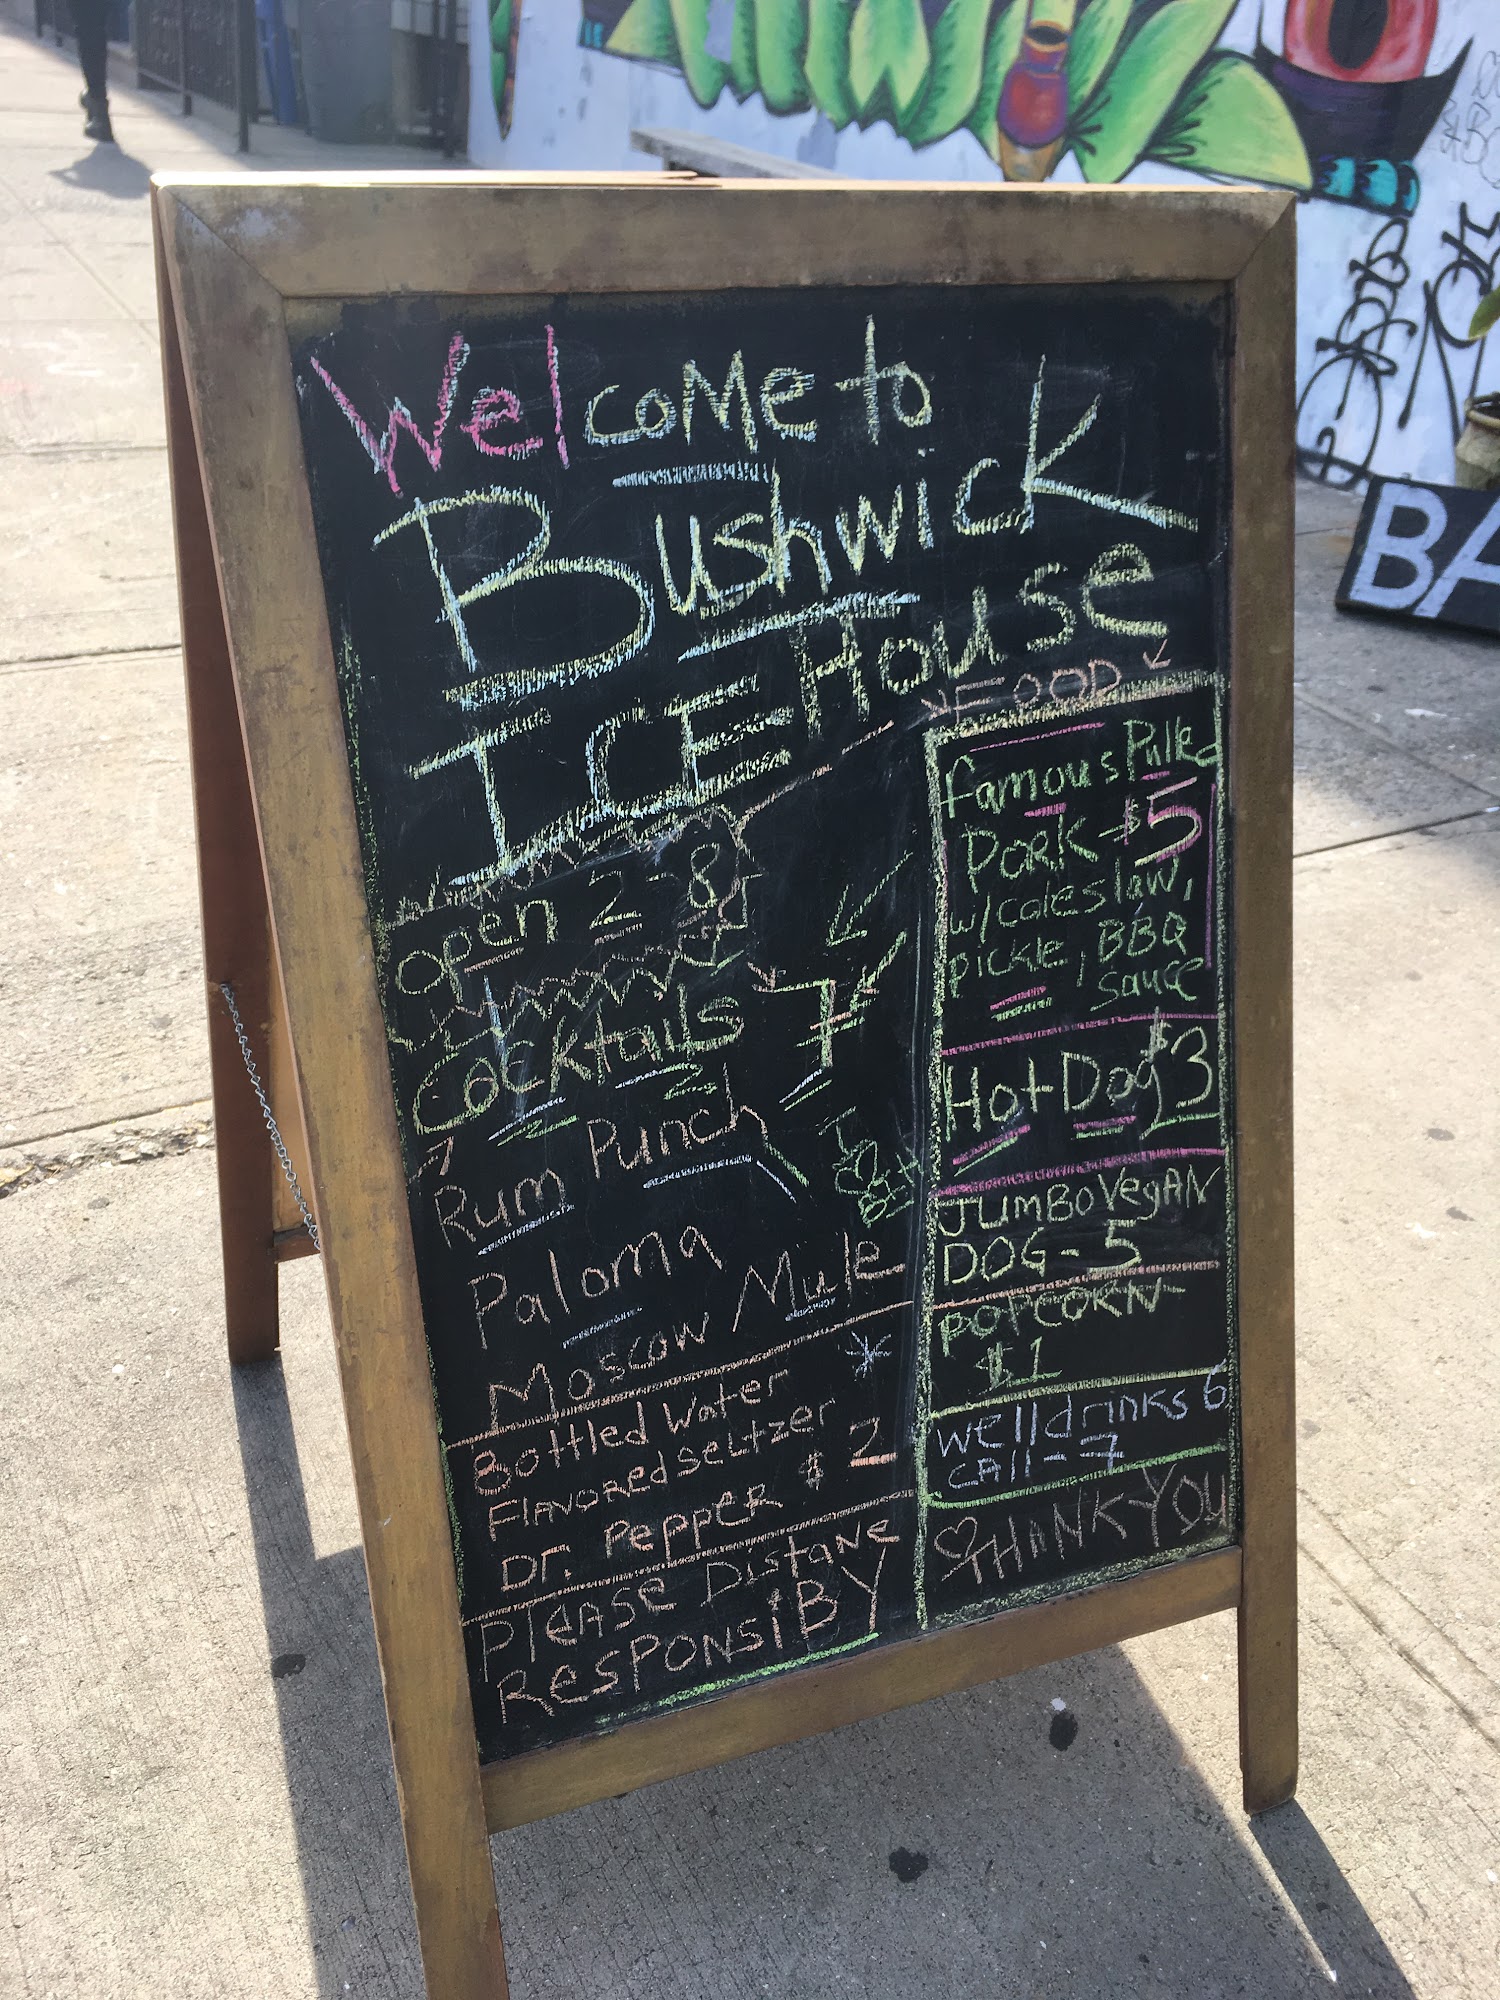 Welcome to
Bushwick
ICE House
Open 2-8
Cocktails 7
To Go
Rum Punch
Paloma
Moscow Mule
Bottled Water
Flavored seltzer
Dr. Pepper $2
Please Distane
RESPONSiBY
FOOD
Famous Pulled
Pork - $5
w/coleslaw,
pickle, BBQ
sauce
Hot Dog $3
JUMBO VegAN
DOG - 5
POPCORN
$1
well drinks 6
CAll - 7
THANK YOU
BA